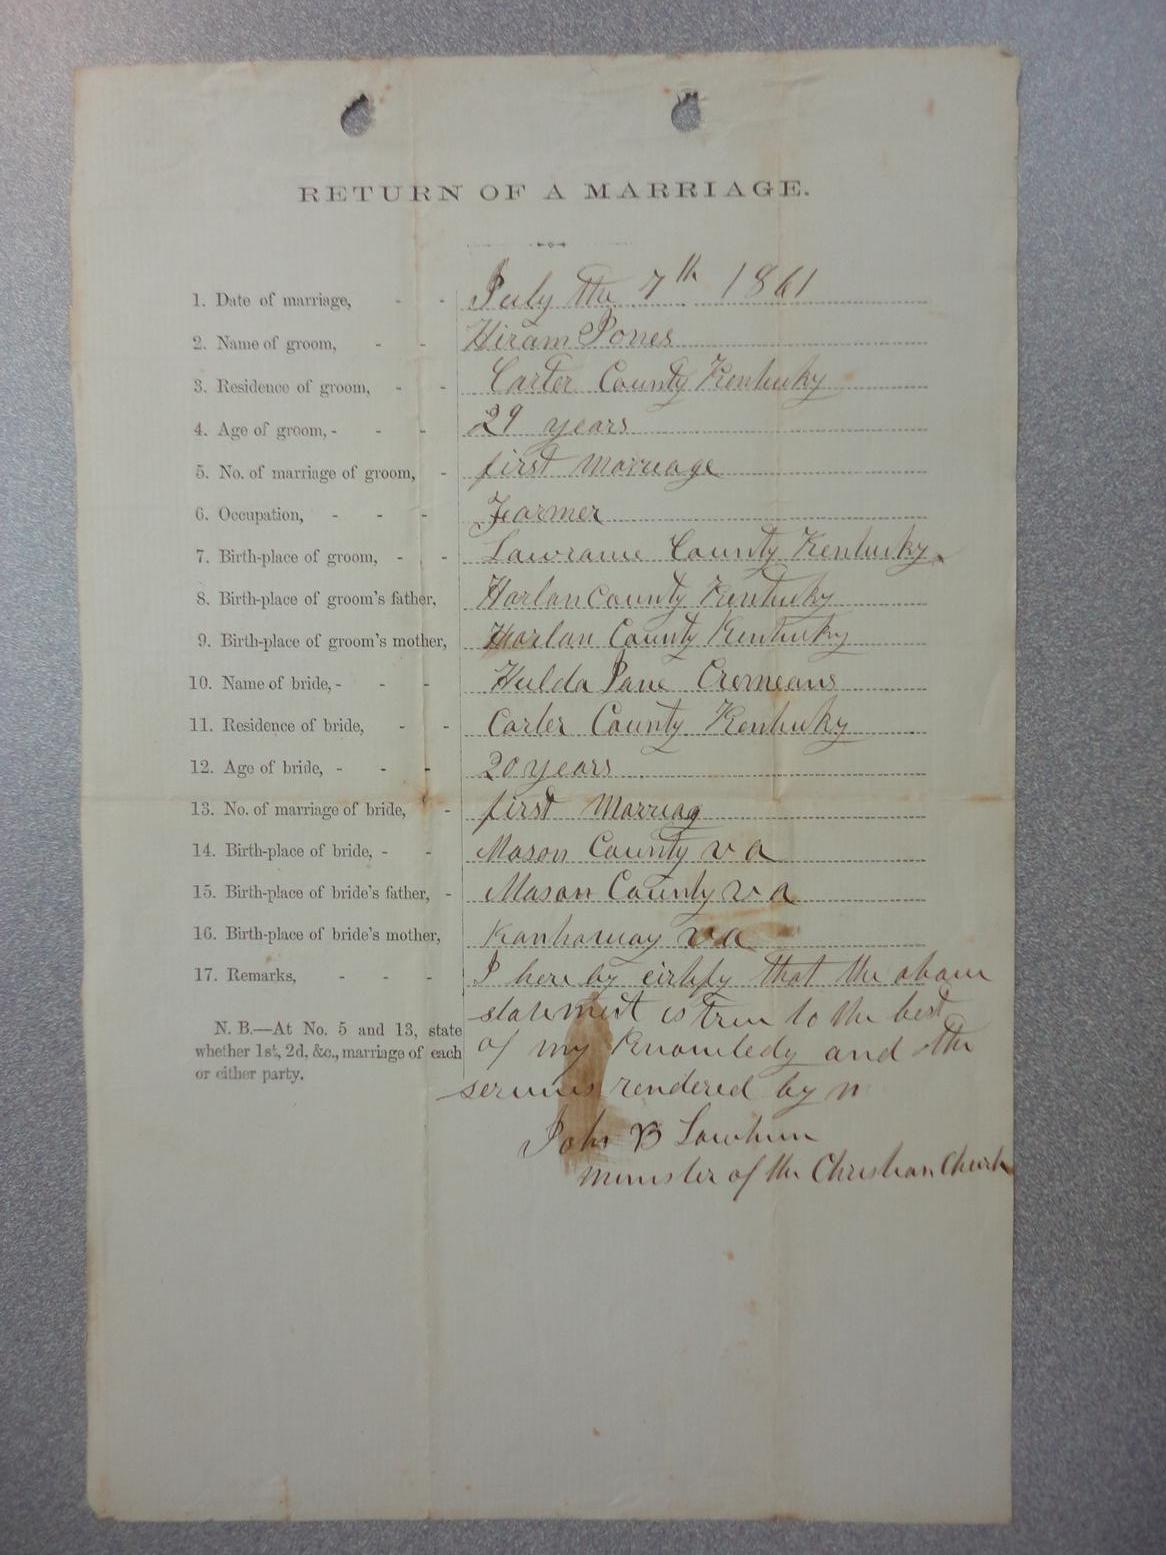 RETURN OF A MARRIAGE.
1. Date of marriage, - - July the 7th 1861
2. Name of groom, - - Hiram Jones
3. Residence of groom, - - Carter County Kentucky
4. Age of groom, - - - 29 years
5. No. of marriage of groom, - first Marreage
6. Occupation, - - - Farmer
7. Birth-place of groom, - - Lawrance County Kentucky
8. Birth-place of groom's father, Harlan County Kentucky
9. Birth-place of groom's mother, Harlan County Kentucky
10. Name of bride, - - - Hulda Jane Cremeans
11. Residence of bride, - - Carter County Kentucky
12. Age of bride, - - - 20 years
13. No. of marriage of bride, - first Marriag
14. Birth-place of bride, - - Mason County va
15. Birth-place of bride's father, - Mason County va
16. Birth-place of bride's mother, Kanhaway va
17. Remarks, - - - I here by cirtify that the above
statement is true to the best
N. B.—At No. 5 and 13, state
whether 1st, 2d, &c., marriage of each
or either party.
of my Knowledg and the
servies rendered by
John B
Minister of the Christian Church